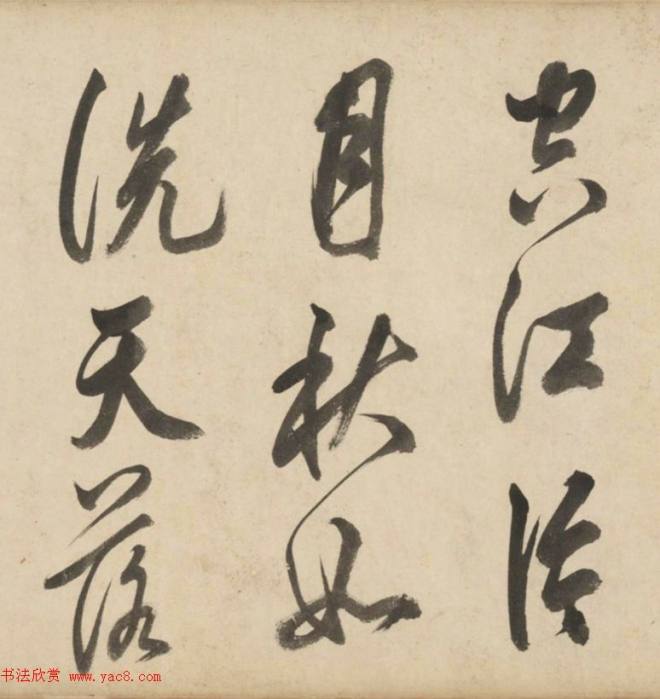 空江
月秋如
洗天落
书法欣赏 www.yac8.com